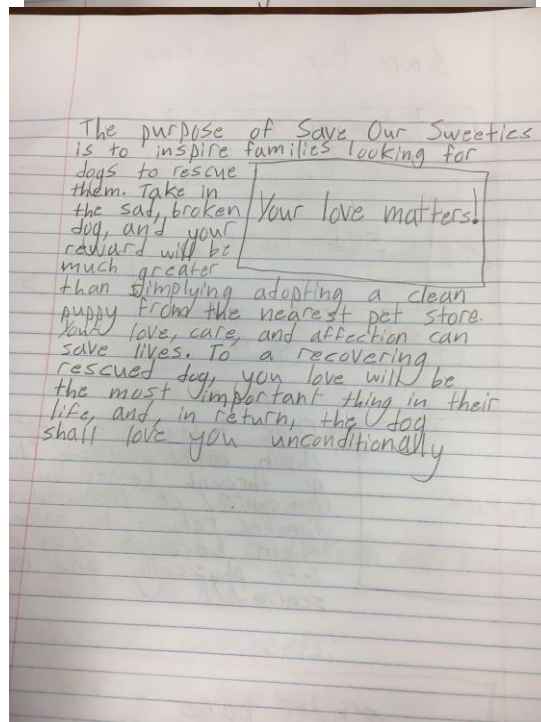 The purpose of Save Our Sweeties
is to inspire families looking for
dogs to rescue
them. Take in
the sad, broken
dog, and your
reward will be
much greater
Your love matters!
than simplying adopting a clean
puppy from the nearest pet store.
Your love, care, and affection can
save lives. To a recovering
rescued dog, you love will be
the most important thing in their
life, and, in return, the dog
shall love you unconditionally